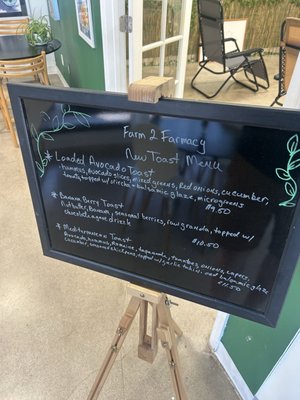 Farm 2 Farmacy
New Toast Menu
* Loaded Avocado Toast
hummus, Avocado slices, mixed greens, Red onions, cucumber,
tomato, topped w/ siracha + balsamic glaze, microgreens
$9.50
* Banana Berry Toast
Nut butter, Banana, seasonal berries, raw granola, topped w/
chocolate agave drizzle
$10.50
* Mediterranean Toast
Avocado, hummus, Romaine, tapanada, tomatoes, onions, capers,
Cucumber, seasoned chickpeas, topped w/ garlic tahini + balsamic glaze
$11.50